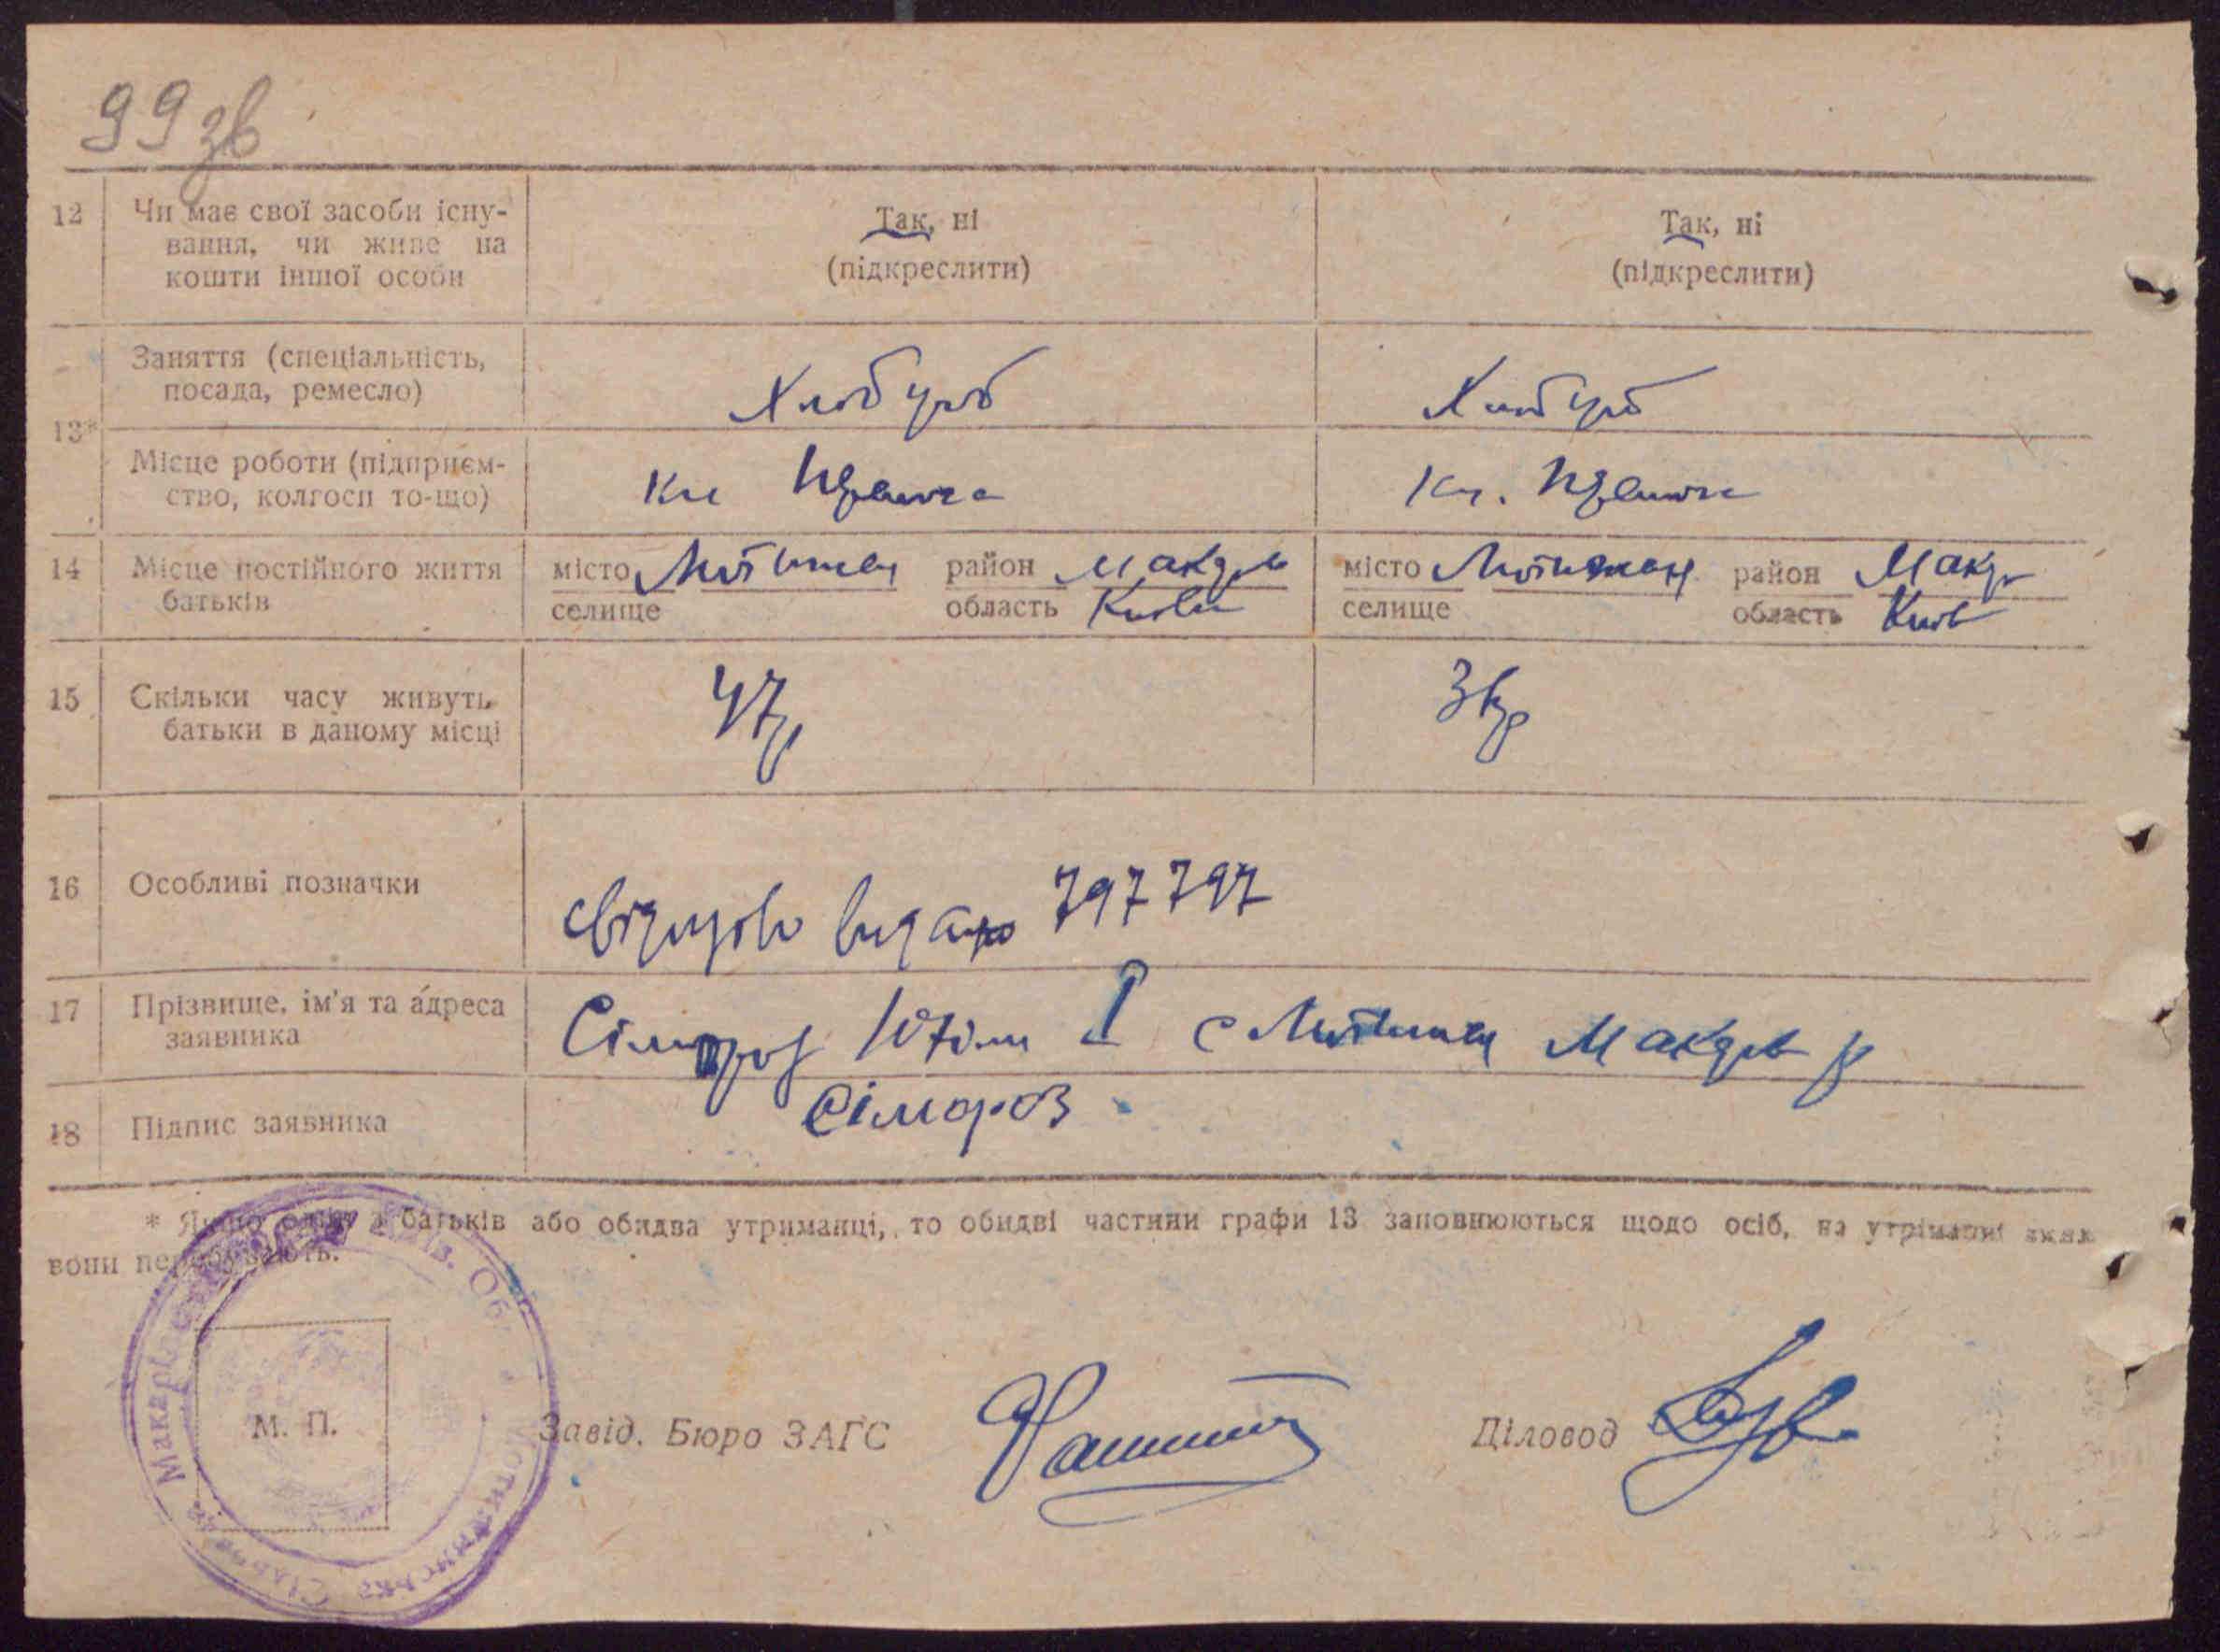 99зв
12 Чи має свої засоби існу-
вання, чи живе на
кошти іншої особи
Так, ні
(підкреслити)
Так, ні
(підкреслити)
13*
Заняття (спеціальність,
посада, ремесло)
Хлібороб
Хлібороб
Місце роботи (підприєм-
ство, колгосп то-що)
14 Місце постійного життя
батьків
місто
селище
район Макарів
область Київ
місто
селище
район Макар
область Київ
15 Скільки часу живуть
батьки в даному місці
47р
16 Особливі позначки
свідоцтво видано 797797
17 Прізвище, ім'я та адреса
заявника
Сімороз Юхим с Мотижин Макарів р
18 Підпис заявника
Сімороз
* Якщо один з батьків або обидва утриманці, то обидві частини графи 13 заповнюються щодо осіб, на утріманні яких
вони перебувають.
М. П.
Завід. Бюро ЗАГС
Діловод